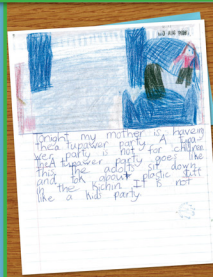 Tonight my mother is having
thea tupawer party. A tupa-
wer party is not for children
theA tupawer party goes like
this the adolt sit down
and tok about plastic stuff
in the kichin It is not
like a kids party.